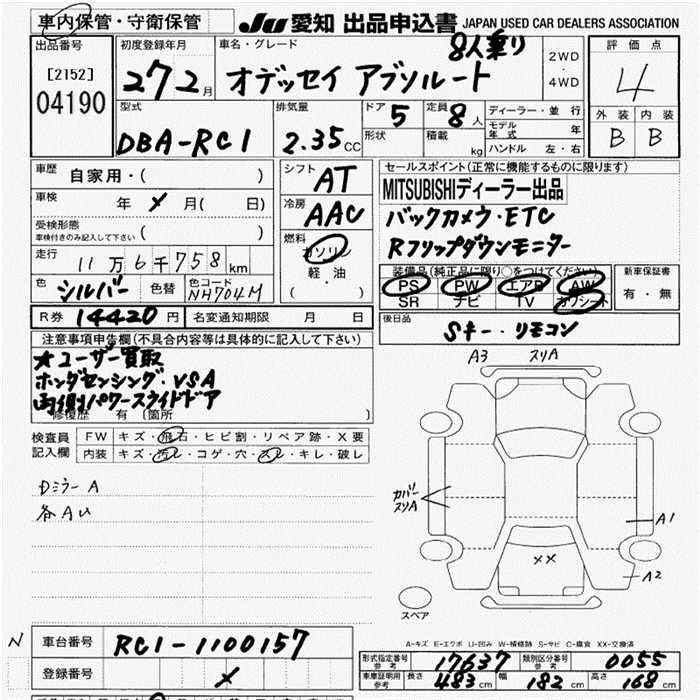 車内保管・守衛保管 JU 愛知 出品申込書 JAPAN USED CAR DEALERS ASSOCIATION
出品番号 初度登録年月 車名・グレード 8人乗り 2WD・4WD 評価点
[2152] 04190 27 2月 オデッセイ アブソルート 4
型式 排気量 ドア 5 定員 8人 ディーラー・並行 外装 内装
DBA-RC1 2.35CC 形状 積載 kg モデル年式 年 B B
ハンドル 左・右
車歴 自家用・( ) シフト AT セールスポイント(正常に機能するものに限ります)
車検 年 メ 月( 日) 冷房 AAC MITSUBISHIディーラー出品
受検形態 車検付きのみ記入して下さい ( ) バックカメラ・ETC
走行 11万6千758km 燃料 ガソリン Rフリップダウンモニター
軽・油 装備品(純正品に限り○をつけてください) 新車保証書
色 シルバー 色替 色コード NH704M ( ・ ) PS PW エアB AW 有・無
SR ナビ TV カワシート
R券 14420円 名変通知期限 月 日 後日品 Sキー・リモコン
注意事項申告欄(不具合内容等は具体的に記入して下さい)
★ユーザー買取
ホンダセンシング・VSA
両側パワースライドドア
修復歴 有 [箇所
検査員記入欄 FW キズ・飛石・ヒビ割・リペア跡・X要
内装 キズ・汚レ・コゲ・穴・スレ・キレ・破レ
DミラーA
各AU
A3 スリA
カバースリA
A1
XX
A2
スペア
A-キズ E-エクボ U-凹み W-補修跡 S-サビ C-腐食 XX-交換済
N 車台番号 RC1-1100157
登録番号 メ
形式指定番号 参考 17637 類別区分番号 参考 0055
車庫証明用 参考 長さ 483cm 幅 182cm 高さ 168cm